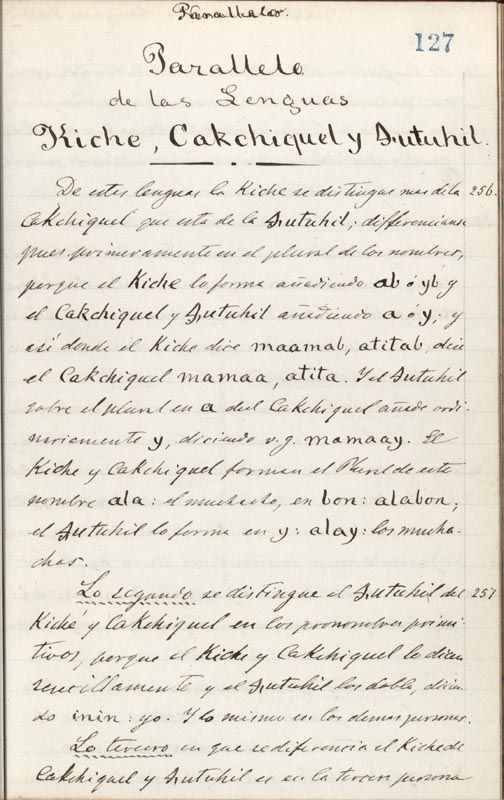 Paralelo.
127
Parallelo
de las Lenguas
Kiche, Cakchiquel y Sutuhil.
De estas lenguas la Kiche se distingue mas de la 256.
Cakchiquel que esta de la Sutuhil; differencianse
pues primeramente en el plural de los nombres,
porque el Kiche lo forma añadiendo ab ó yb y
el Cakchiquel y Sutuhil añadiendo a ó y; y
así donde el Kiche dice maamab, atitab, dice
el Cakchiquel mamaa, atita. Y el Sutuhil
sobre el plural en a del Cakchiquel añade ordi-
nariamente y, diciendo v.g. mamaay. El
Kiche y Cakchiquel forman el Plural de este
nombre ala: el muchacho, en bon: alabon;
el Sutuhil lo forma en y: alay: los mucha-
chos.
Lo segundo se distingue el Sutuhil del 257
Kiché y Cakchiquel en los pronombres primi-
tivos, porque el Kiche y Cakchiquel lo dicen
sencillamente, y el Sutuhil los dobla, dicien-
do inin: yo. Y lo mismo en las demas personas.
Lo tercero en que se diferencia el Kiche de
Cakchiquel y Sutuhil es en la tercera persona